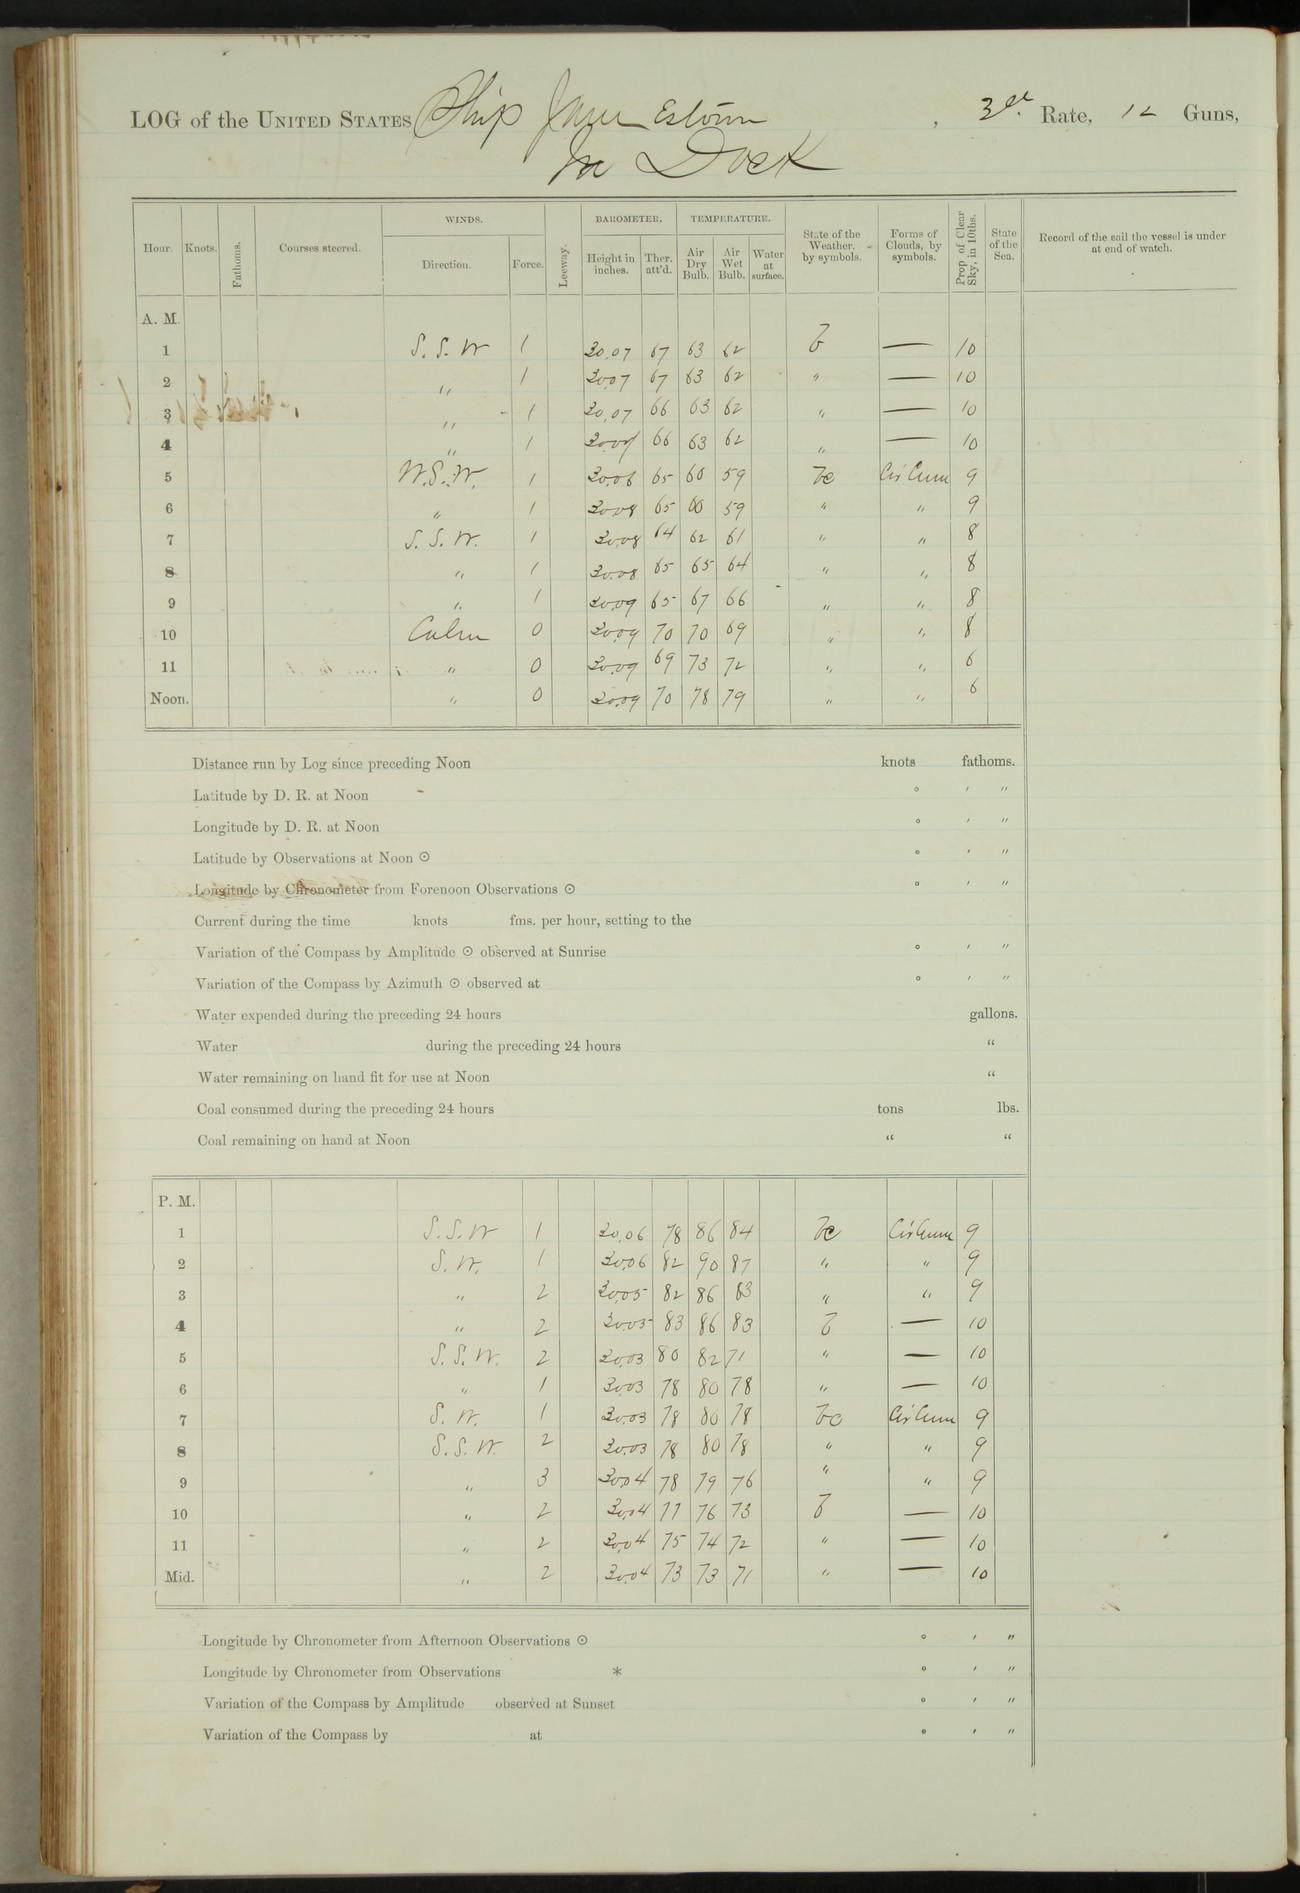 LOG of the UNITED STATES Ship Jamestown, 3d. Rate, 12 Guns,
In Dock
Hour. Knots. Fathoms. Courses steered. WINDS. Direction. Force. Leeway. BAROMETER. Height in inches. Ther. att'd. TEMPERATURE. Air Dry Bulb. Air Wet Bulb. Water at surface. State of the Weather. by symbols. Forms of Clouds, by symbols. Prop. of Clear Sky, in 10ths. State of the Sea. Record of the sail the vessel is under at end of watch.
A. M.
1 S. S. W 1 30.07 67 63 62 b — 10
2 " 1 30.07 67 63 62 " — 10
3 " 1 30.07 66 63 62 " — 10
4 " 1 30.07 66 63 62 " — 10
5 W. S. W. 1 30.06 65 60 59 bc Cir Cum 9
6 " 1 30.08 65 60 59 " " 9
7 S. S. W. 1 30.08 64 62 61 " " 8
8 " 1 30.08 65 65 64 " " 8
9 " 1 30.09 65 67 66 " " 8
10 Calm 0 30.09 70 70 69 " " 8
11 " 0 30.09 69 73 72 " " 6
Noon. " 0 30.09 70 78 79 " " 6
Distance run by Log since preceding Noon knots fathoms.
Latitude by D. R. at Noon ° ′ ″
Longitude by D. R. at Noon ° ′ ″
Latitude by Observations at Noon ⊙ ° ′ ″
Longitude by Chronometer from Forenoon Observations ⊙ ° ′ ″
Current during the time knots fms. per hour, setting to the
Variation of the Compass by Amplitude ⊙ observed at Sunrise ° ′ ″
Variation of the Compass by Azimuth ⊙ observed at ° ′ ″
Water expended during the preceding 24 hours gallons.
Water during the preceding 24 hours “
Water remaining on hand fit for use at Noon “
Coal consumed during the preceding 24 hours tons lbs.
Coal remaining on hand at Noon “ “
P. M.
1 S. S. W 1 30.06 78 86 84 bc Cir Cum 9
2 S. W. 1 30.06 82 90 87 " " 9
3 " 2 30.05 82 86 83 " " 9
4 " 2 30.05 83 86 83 b — 10
5 S. S. W. 2 30.03 80 82 71 " — 10
6 " 1 30.03 78 80 78 " — 10
7 S. W. 1 30.03 78 80 78 bc Cir Cum 9
8 S. S. W. 2 30.03 78 80 78 " " 9
9 " 3 30.04 78 79 76 " " 9
10 " 2 30.04 77 76 73 b — 10
11 " 2 30.04 75 74 72 " — 10
Mid. " 2 30.04 73 73 71 " — 10
Longitude by Chronometer from Afternoon Observations ⊙ ° ′ ″
Longitude by Chronometer from Observations * ° ′ ″
Variation of the Compass by Amplitude observed at Sunset ° ′ ″
Variation of the Compass by at ° ′ ″